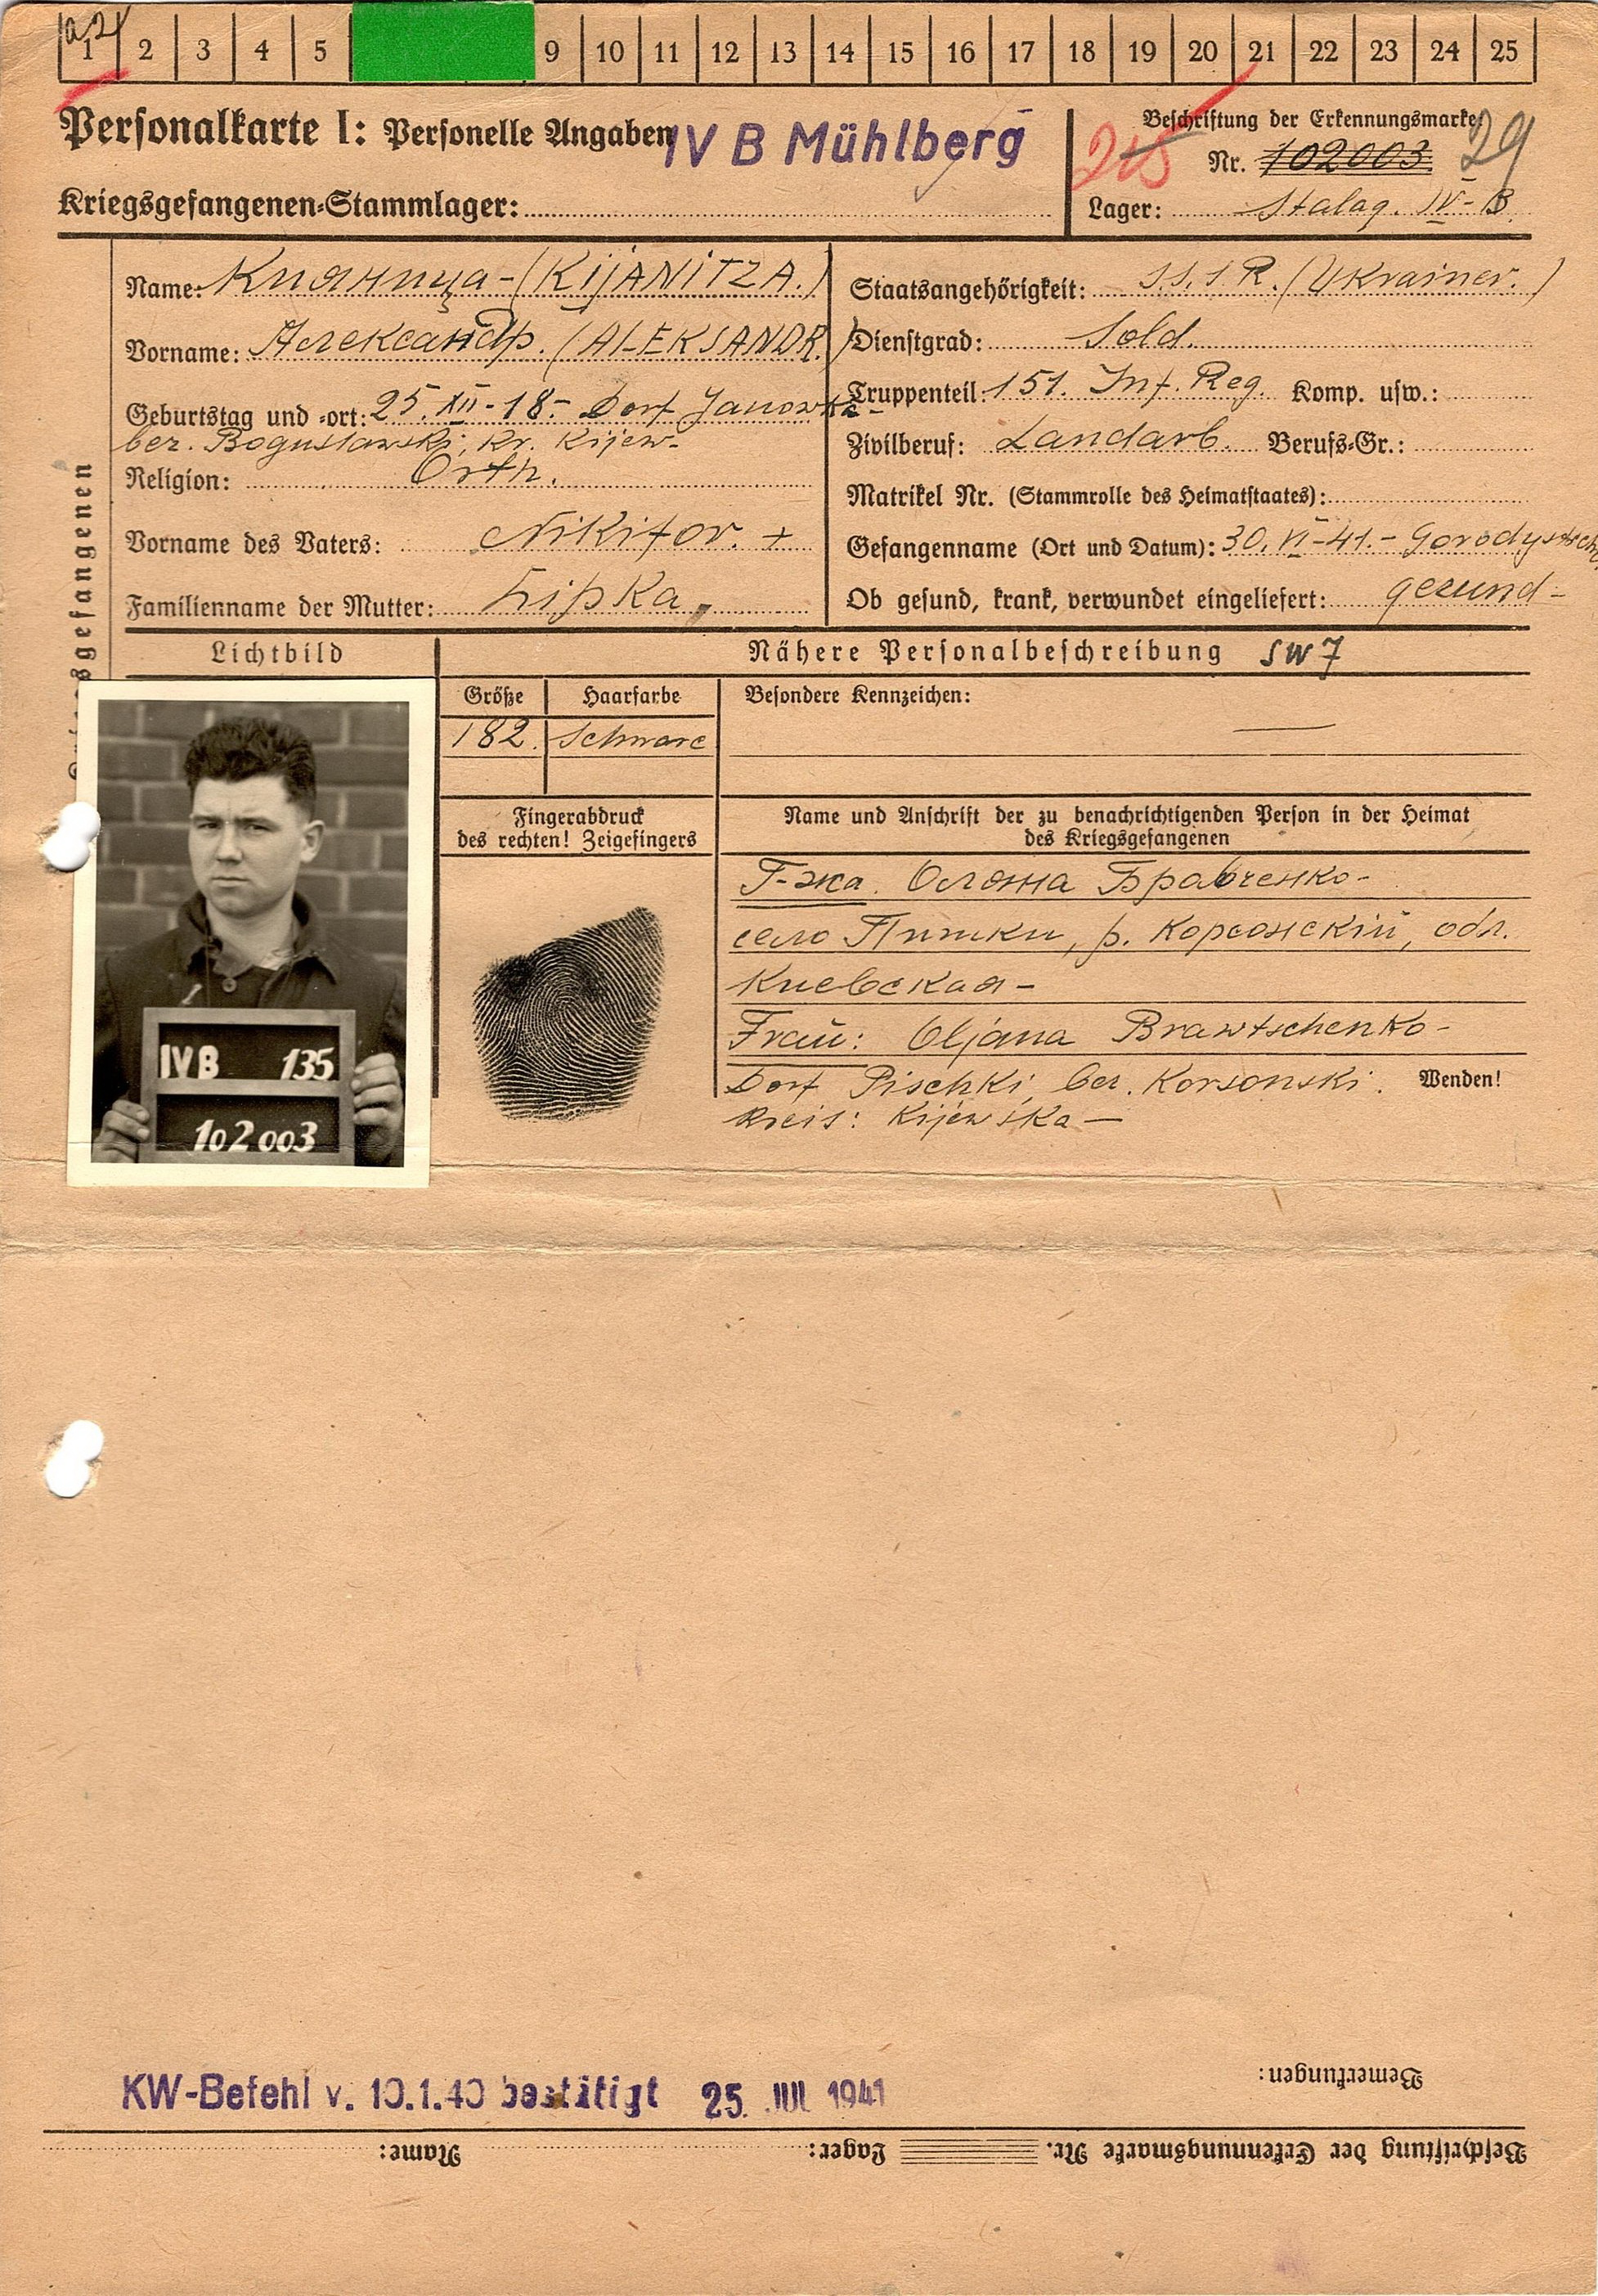 1 2 3 4 5 9 10 11 12 13 14 15 16 17 18 19 20 21 22 23 24 25
Personalkarte I: Personelle Angaben
IV B Mühlberg
Kriegsgefangenen-Stammlager:
Beschriftung der Erkennungsmarke
Nr. 102003 29
Lager: Stalag. IV-B
Name: Кияница-(KIJANITZA.)
Vorname: Александр. (ALEKSANDR.)
Geburtstag und -ort: 25.XII-18.- Dorf Janowka-
bez. Boguslawski, Kr. Kijew-
Religion: Orth.
Vorname des Vaters: Nikifor. +
Familienname der Mutter: Lipka
Staatsangehörigkeit: S.S.S.R. (Ukrainer.)
Dienstgrad: Sold.
Truppenteil: 151. Inf. Reg. Komp. usw.:
Zivilberuf: Landarb. Berufs-Gr.:
Matrikel Nr. (Stammrolle des Heimatstaates):
Gefangenname (Ort und Datum): 30.VI-41.-
Ob gesund, krank, verwundet eingeliefert: gesund-
Lichtbild
Nähere Personalbeschreibung SW7
Größe Haarfarbe Besondere Kennzeichen:
182. Schwarz —
Fingerabdruck
des rechten! Zeigefingers
Name und Anschrift der zu benachrichtigenden Person in der Heimat
des Kriegsgefangenen
Г-жа. Олена Бравченко-
село Пишки, р. Корсонский, обл.
Киевская-
Frau: Oljana Brawtschenko-
Dorf Pischki, bez. Korsonski. Wenden!
Kreis: Kijewska—
IVB 135
102003
KW-Befehl v. 10.1.40 bestätigt 25. JUL 1941
Bemerkungen:
Beschriftung der Erkennungsmarke Nr. Lager: Name: